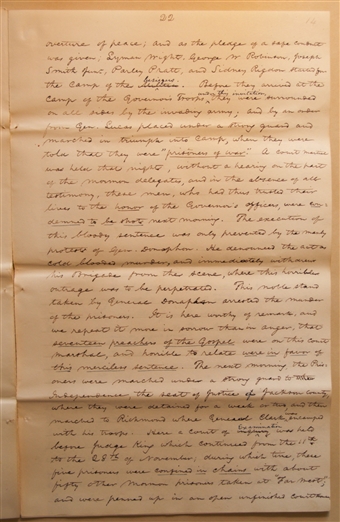 22
overture of peace; and as the pledge of a safe conduct
was given; Lyman Wight, George W Robinson, Joseph
Smith Junr, Parley Pratt, and Sidney Rigdon started for
the Camp of the besiegers. Before they arrived at the
under the invitation
Camp of the Governors troops, they were surrounded
on all sides by the invading army; and by an order
from Gen. Lucas placed under a strong guard and
marched in triumph into Camp, when they were
told that they were "prisoners of war". A court martial
was held that night, without a hearing on the part
of the mormon delegates, and in the absence of all
testimony, these men, who had thus trusted their
lives to the honor of the Governors officers, were con-
demned to be shot next morning. The execution of
this bloody sentence was only prevented by the manly
protest of Gen. Donaphon. He denounced the act as
cold blooded murder, and immediately withdrew
his Brigade from the scene, where this horrible
outrage was to be perpetrated. This noble stand
taken by General Donaphon arrested the murder
of the prisoners. It is here worthy of remark, and
we repeat it more in sorrow than in anger, that
seventeen preachers of the Gospel were on this court
marshal, and horrible to relate were in favor of
this merciless sentence. The next morning the Pris-
oners were marched under a strong guard to the
Independence, the seat of Justice of Jackson County,
where they were detained for a week or two and then
marched to Richmond where General Clark encamped
with his troops. Here a court of Examination was held
before Judge King which continued from the 11th
to the 28th of November; during which time these
five prisoners were confined in chains with about
fifty other Mormon prisoners taken at Far West,
and were penned up in an open unfinished courthouse